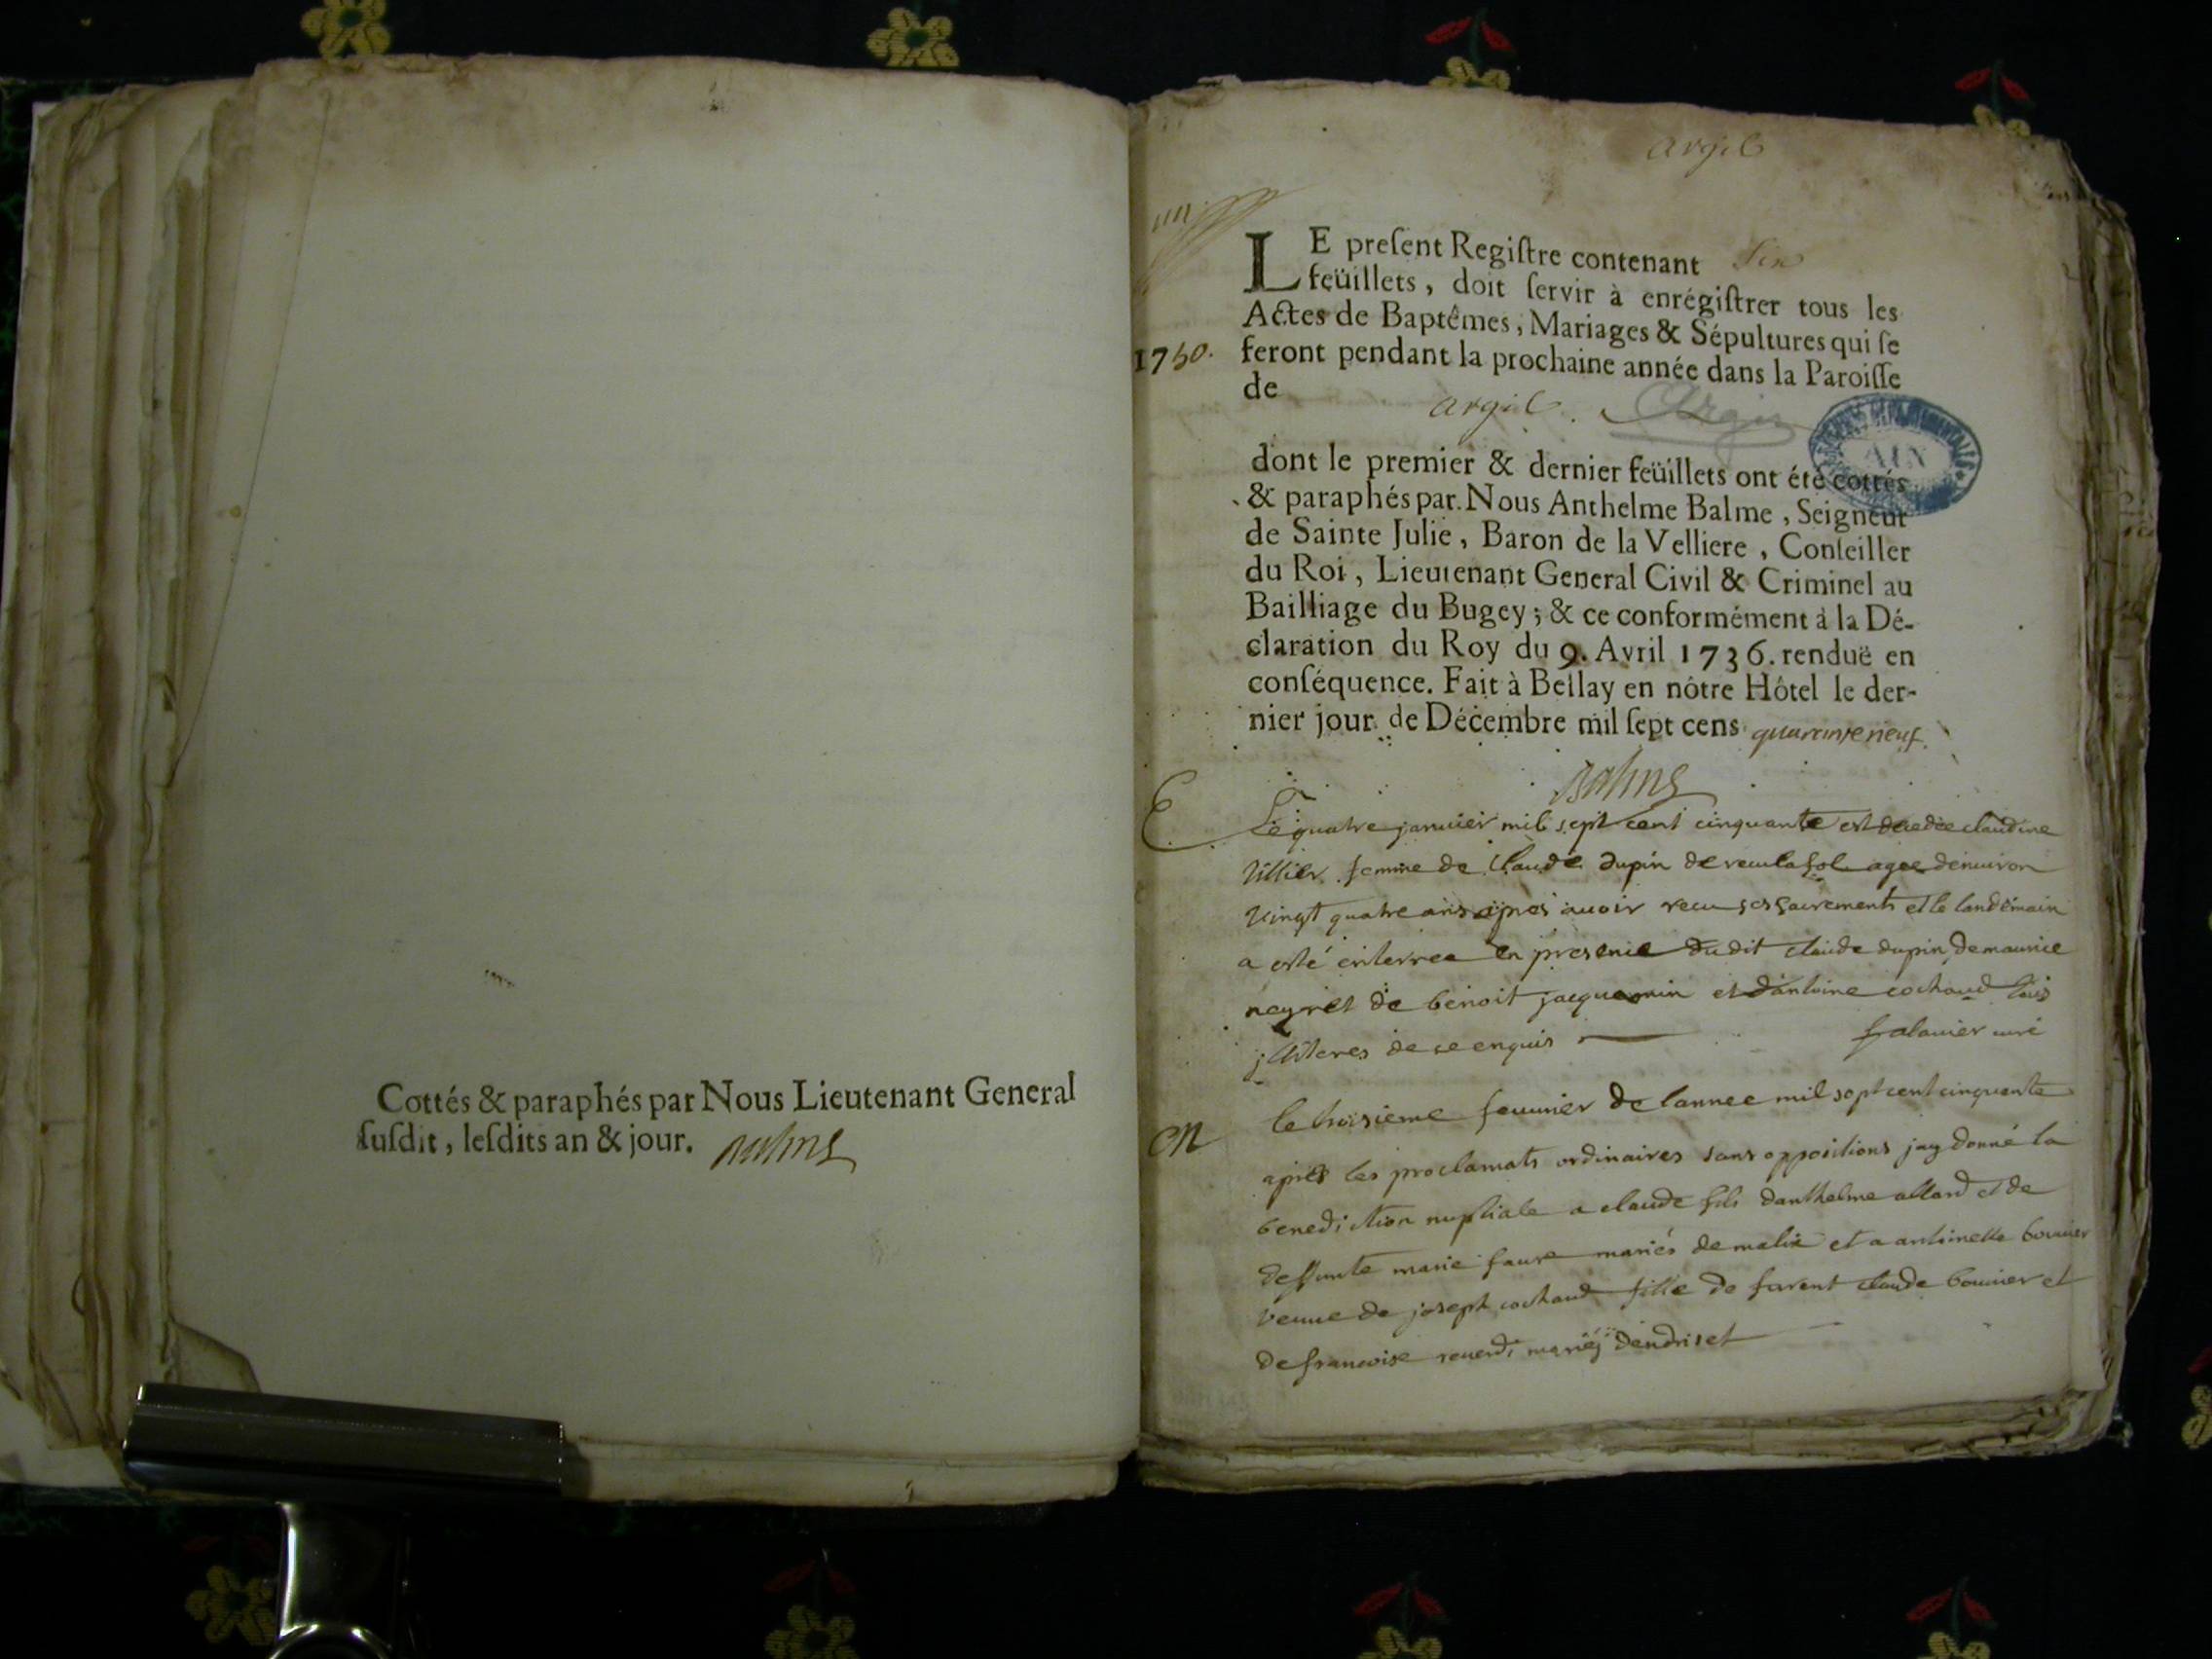 Cottés & paraphés par Nous Lieutenant General
ſuſdit, leſdits an & jour. Balme
argil
1750.
LE preſent Regiſtre contenant Six
feüillets, doit ſervir à enrégiſtrer tous les
Actes de Baptêmes, Mariages & Sépultures qui ſe
feront pendant la prochaine année dans la Paroiſſe
de
argil. Argis
ARCHIVES DEPARTEMENTALES AIN
dont le premier & dernier feüillets ont été cottés
& paraphés par Nous Anthelme Balme, Seigneur
de Sainte Julie, Baron de la Velliere, Conſeiller
du Roi, Lieutenant General Civil & Criminel au
Bailliage du Bugey; & ce conformément à la Dé-
claration du Roy du 9. Avril 1736. renduë en
conſéquence. Fait à Bellay en nôtre Hôtel le der-
nier jour de Décembre mil ſept cens quarante neuf.
Balme
E
Le quatre januier mil sept cent cinquante est decedée claudine
femme de Claude dupin de agee denuiron
vingt quatre ans apres auoir recu ses sacrements et le landemain
a esté enterree en presence du dit claude dupin de maurice
neyret de benoit jacquemin et dantoine cochaud tous
jlliteres de ce enquis falauier curé
M
le troisieme feuurier de lannee mil sept cent cinquante
apres les proclamats ordinaires sans oppositions jay donné la
benediction nuptiale a claude fils danthelme allard et de
deffunte marie faure mariés de malix et a antinette bouuier
veuue de joseph cochaud fille de claude bouuier et
de francoise reuerdi mariés dendriset